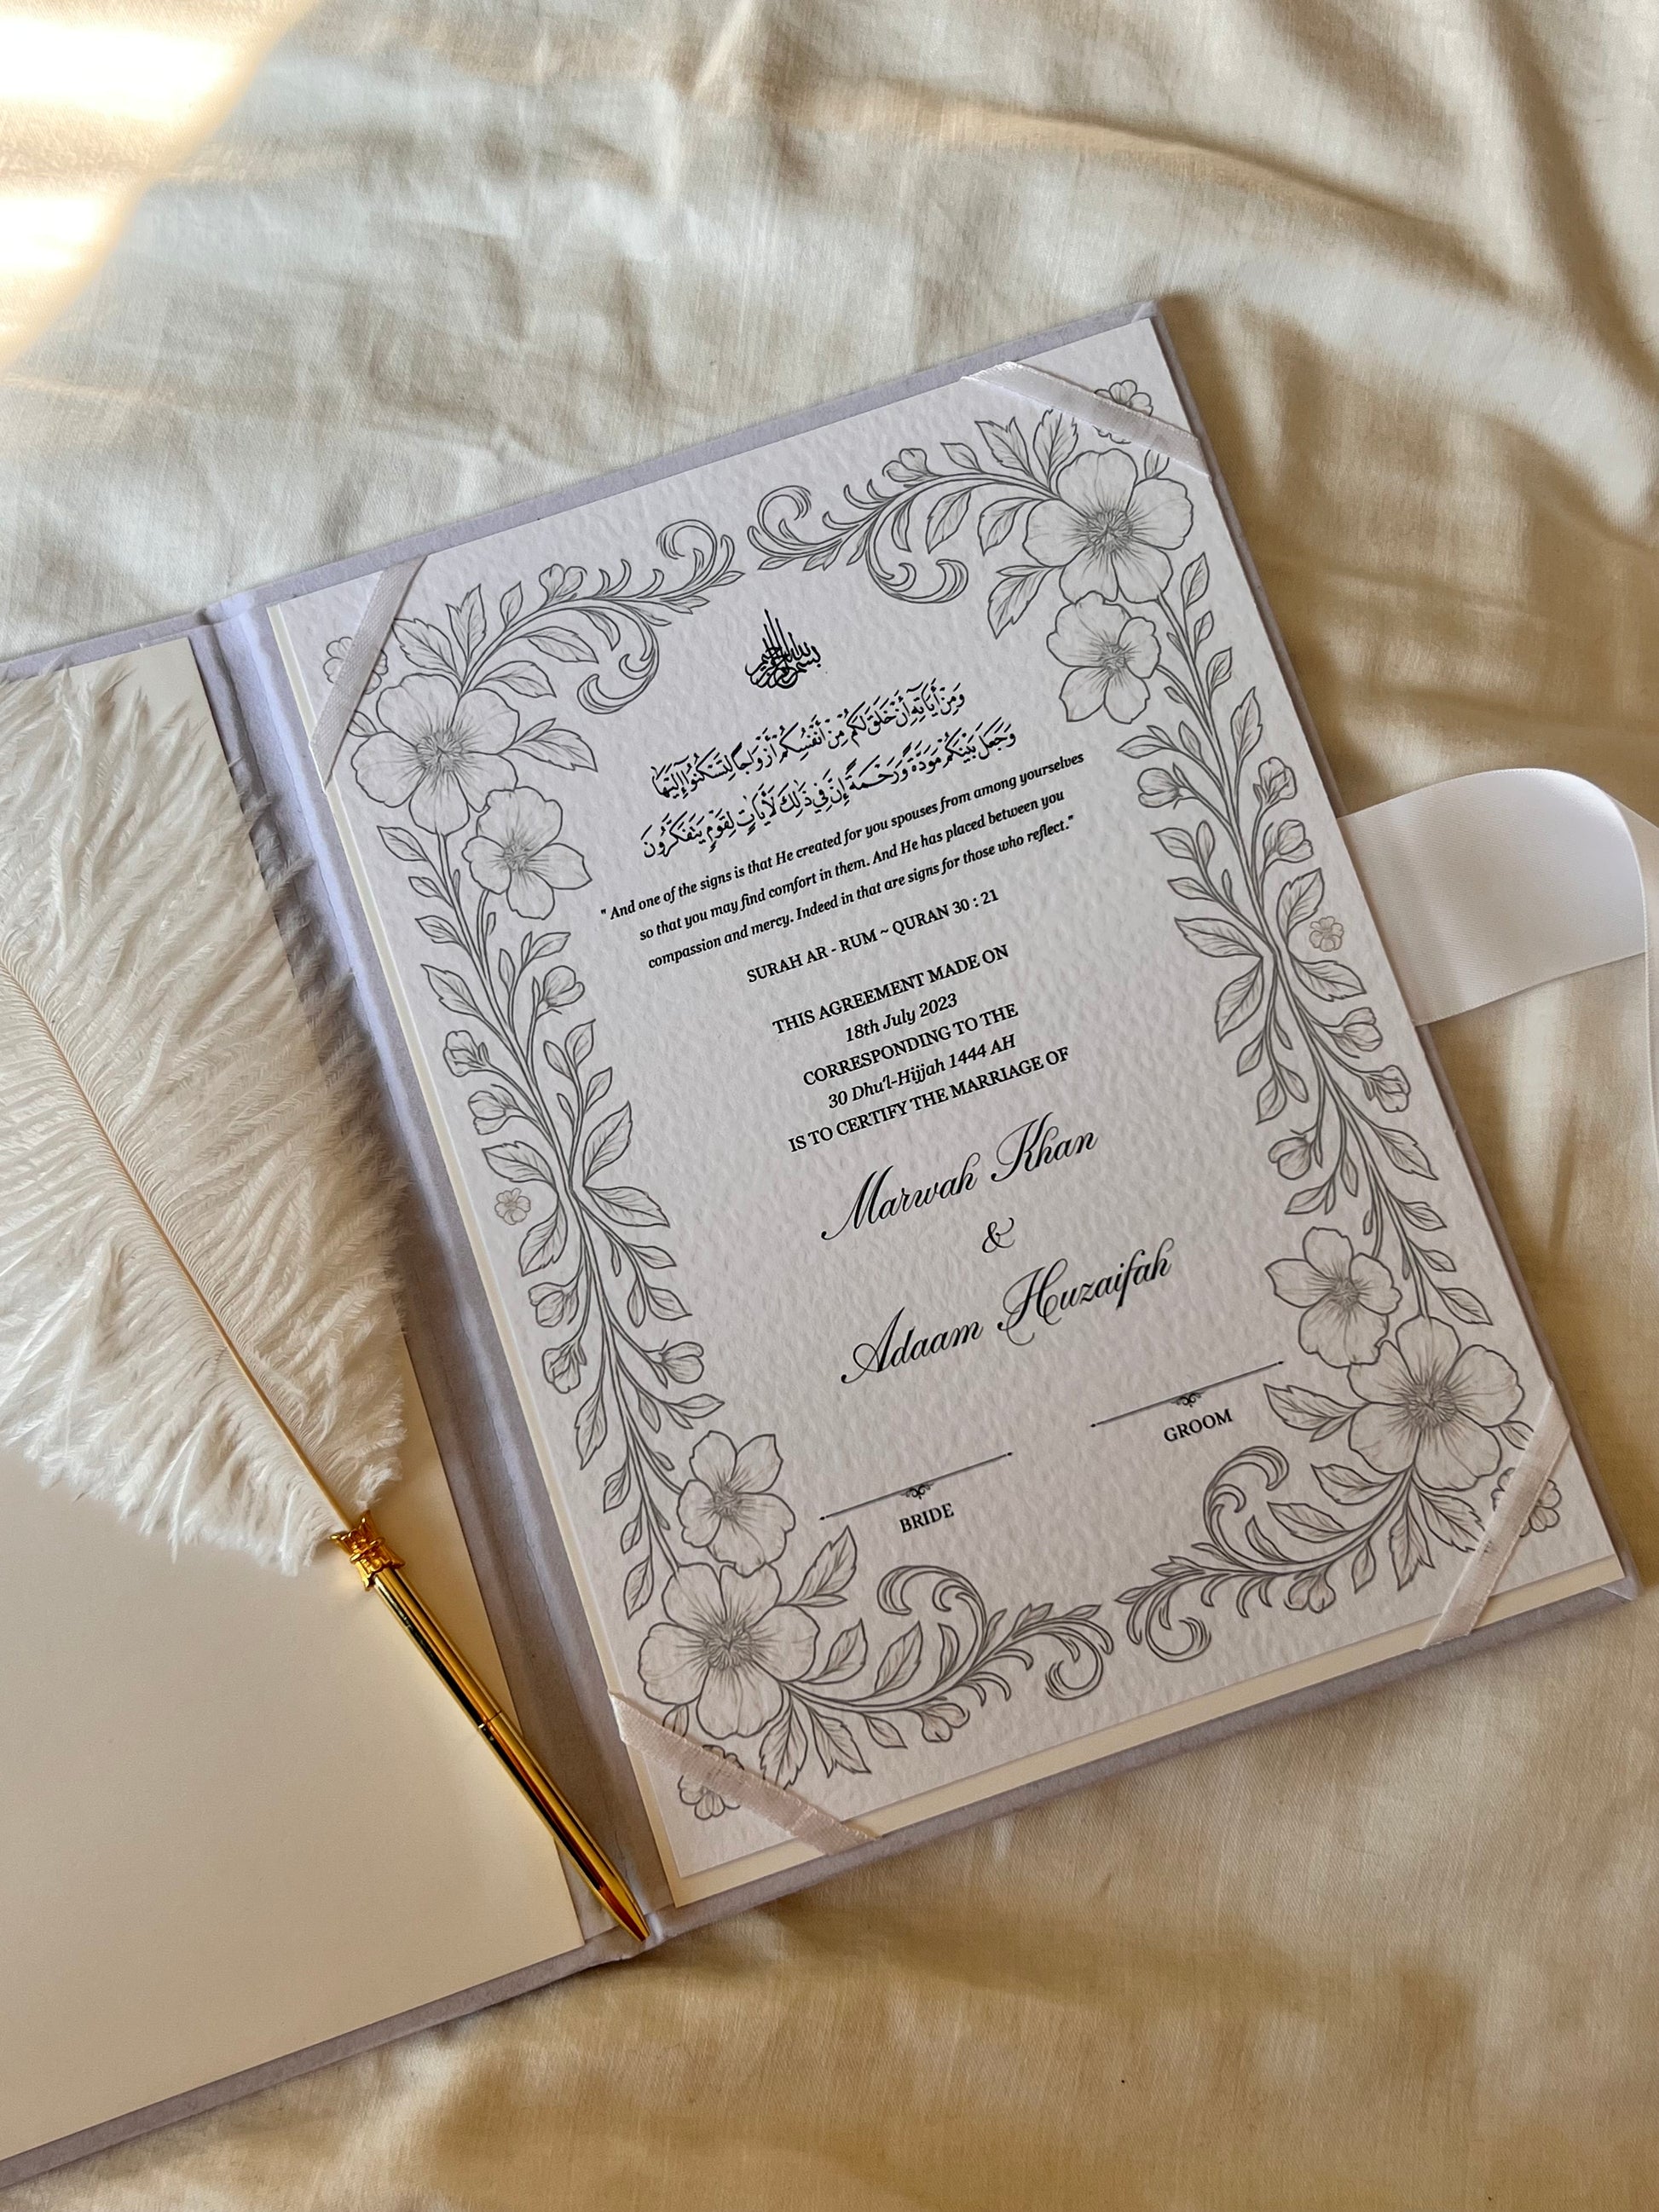 بسم الله الرحمن الرحيم
وَمِنْ أَيَاتِهِ أَنْ خَلَقَ لَكُم مِنْ أَنْفُسِكُمْ أَزْوَاجًا لِتَسْكُنُوا إِلَيْهَا
وَجَعَلَ بَيْنَكُمْ مَوَدَّةً وَرَحْمَةً إِنَّ فِي ذَلِكَ لَأَيَاتٍ لِقَوْمٍ يَتَفَكَّرُونَ
" And one of the signs is that He created for you spouses from among yourselves
so that you may find comfort in them. And He has placed between you
compassion and mercy. Indeed in that are signs for those who reflect."
SURAH AR - RUM ~ QURAN 30 : 21
THIS AGREEMENT MADE ON
18th July 2023
CORRESPONDING TO THE
30 Dhu'l-Hijjah 1444 AH
IS TO CERTIFY THE MARRIAGE OF
Marwah Khan
&
Adaam Huzaifah
GROOM
BRIDE